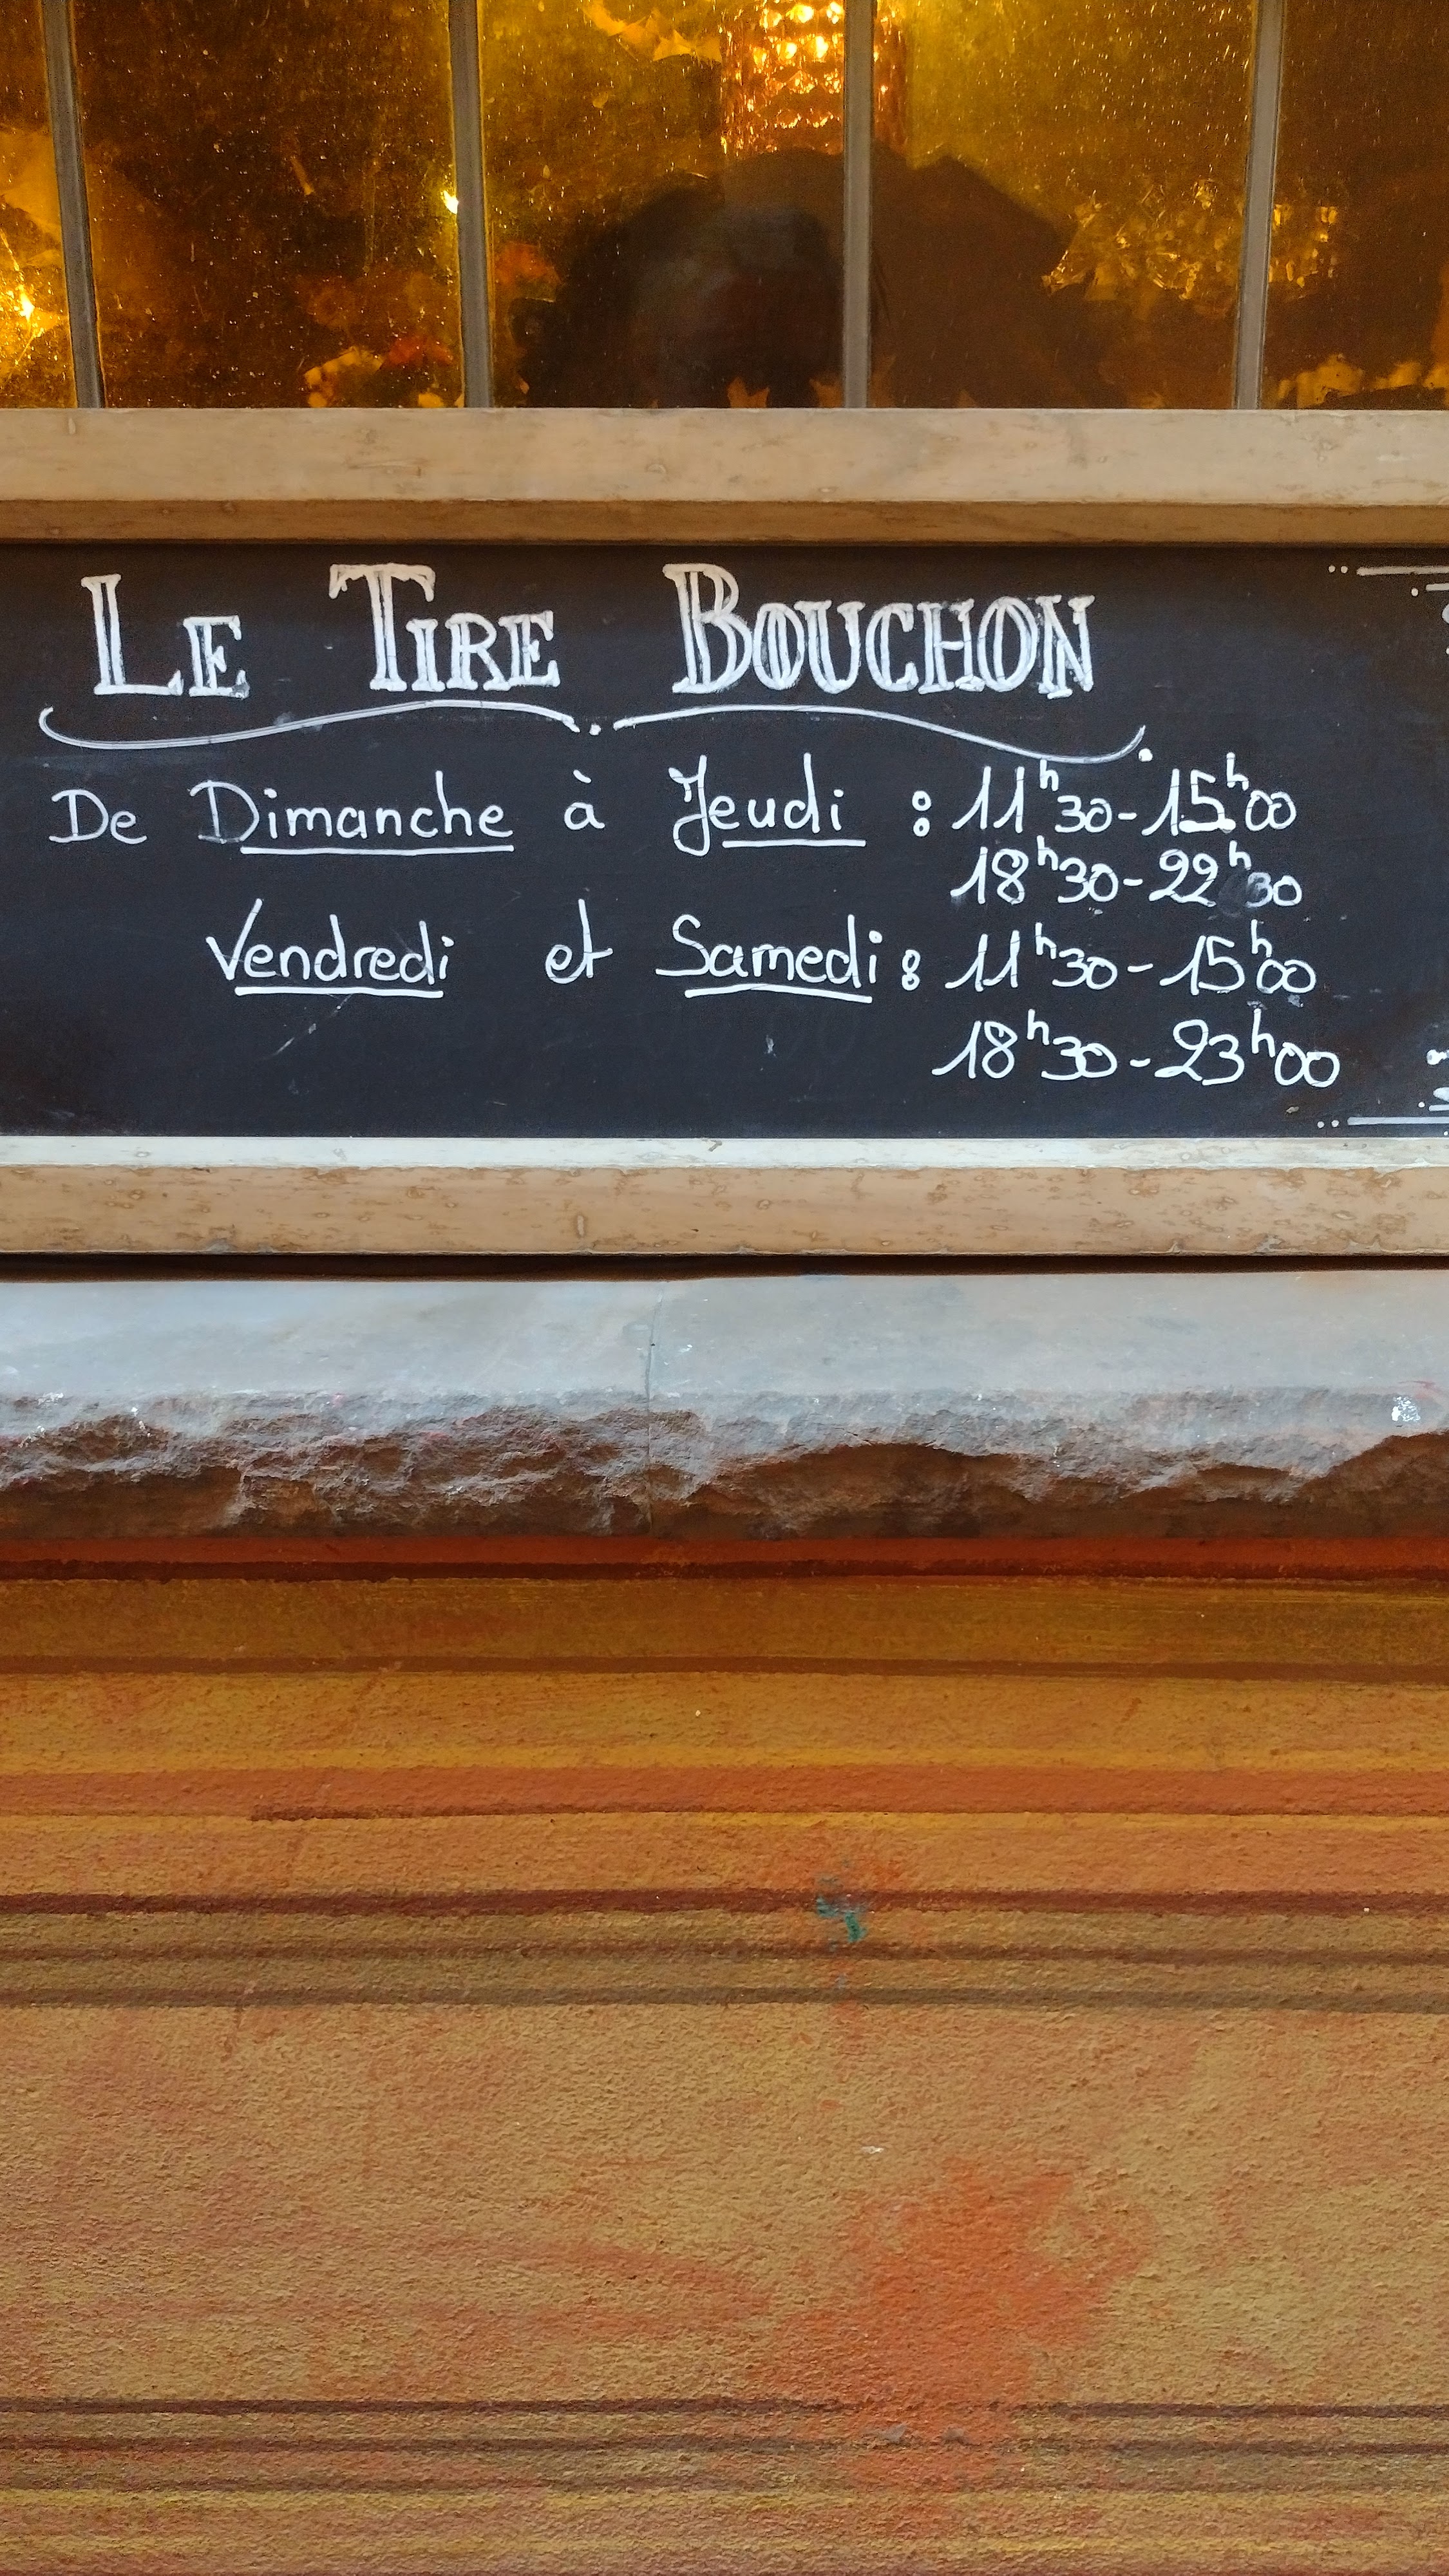 LE TIRE BOUCHON
De Dimanche à Jeudi : 11h30-15h00
18h30-22h30
Vendredi et Samedi : 11h30-15h00
18h30-23h00